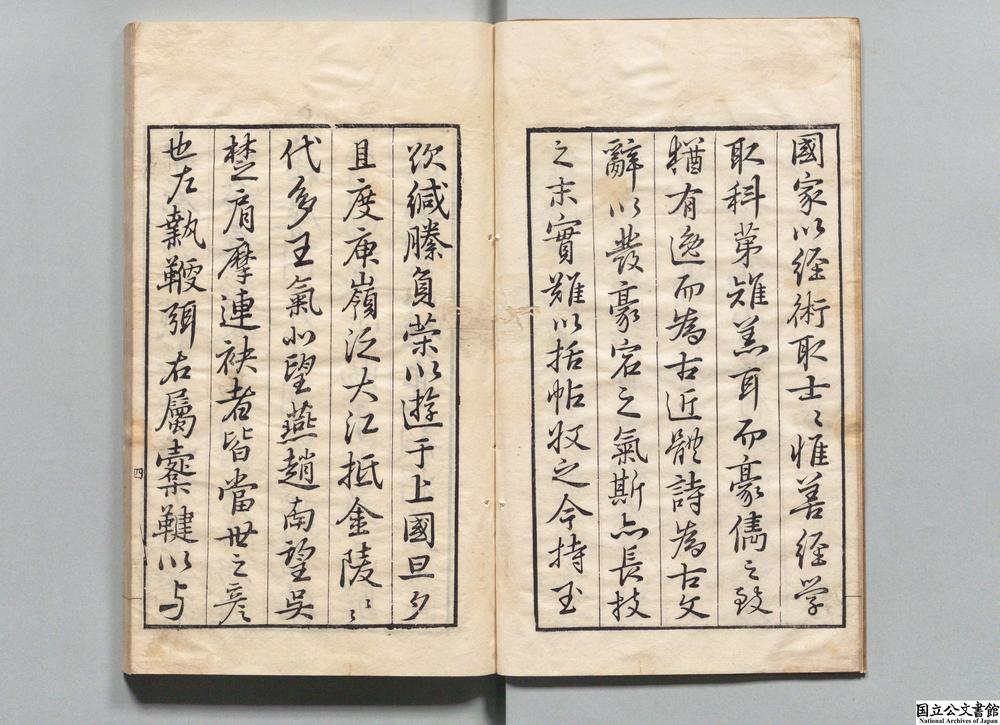 國家以経術取士〻惟善経学
取科第雖羔耳而豪儁之致
猶有逸而為古近體詩為古文
辭以發豪宕之氣斯亦長技
之末實難以括帖收之今持玉
欵緘縢負荣以遊于上國旦夕
且度庾嶺泛大江抵金陵〻〻
代多王氣北望燕趙南望吳
楚肩摩連袂者皆當世之彦
也左執鞭弭右屬櫜鞬以与
四
国立公文書館
National Archives of Japan